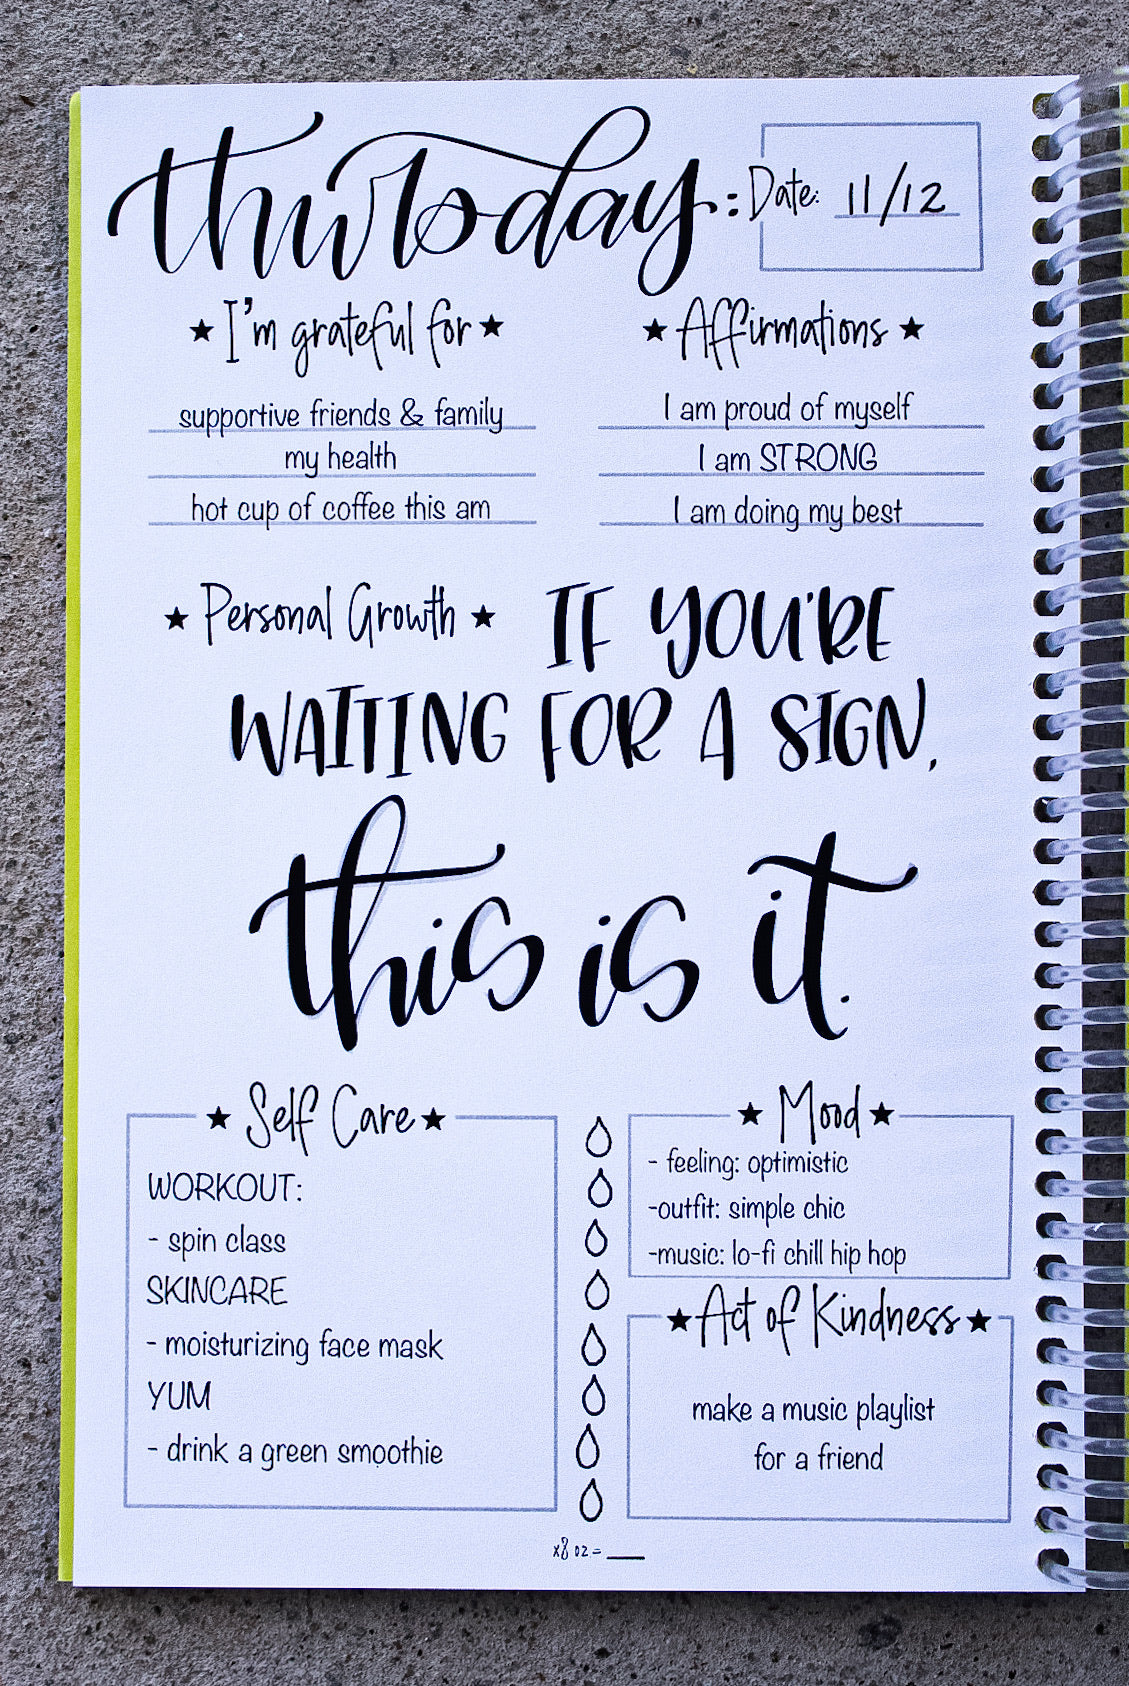 thursday: Date: 11/12
★ I'm grateful for ★
supportive friends & family
my health
hot cup of coffee this am
★ Affirmations ★
I am proud of myself
I am STRONG
I am doing my best
★ Personal Growth ★
IF YOU'RE
WAITING FOR A SIGN,
this is it.
★ Self Care ★
WORKOUT:
- spin class
SKINCARE
- moisturizing face mask
YUM
- drink a green smoothie
★ Mood ★
- feeling: optimistic
-outfit: simple chic
-music: lo-fi chill hip hop
★ Act of Kindness ★
make a music playlist
for a friend
x8 oz = ___